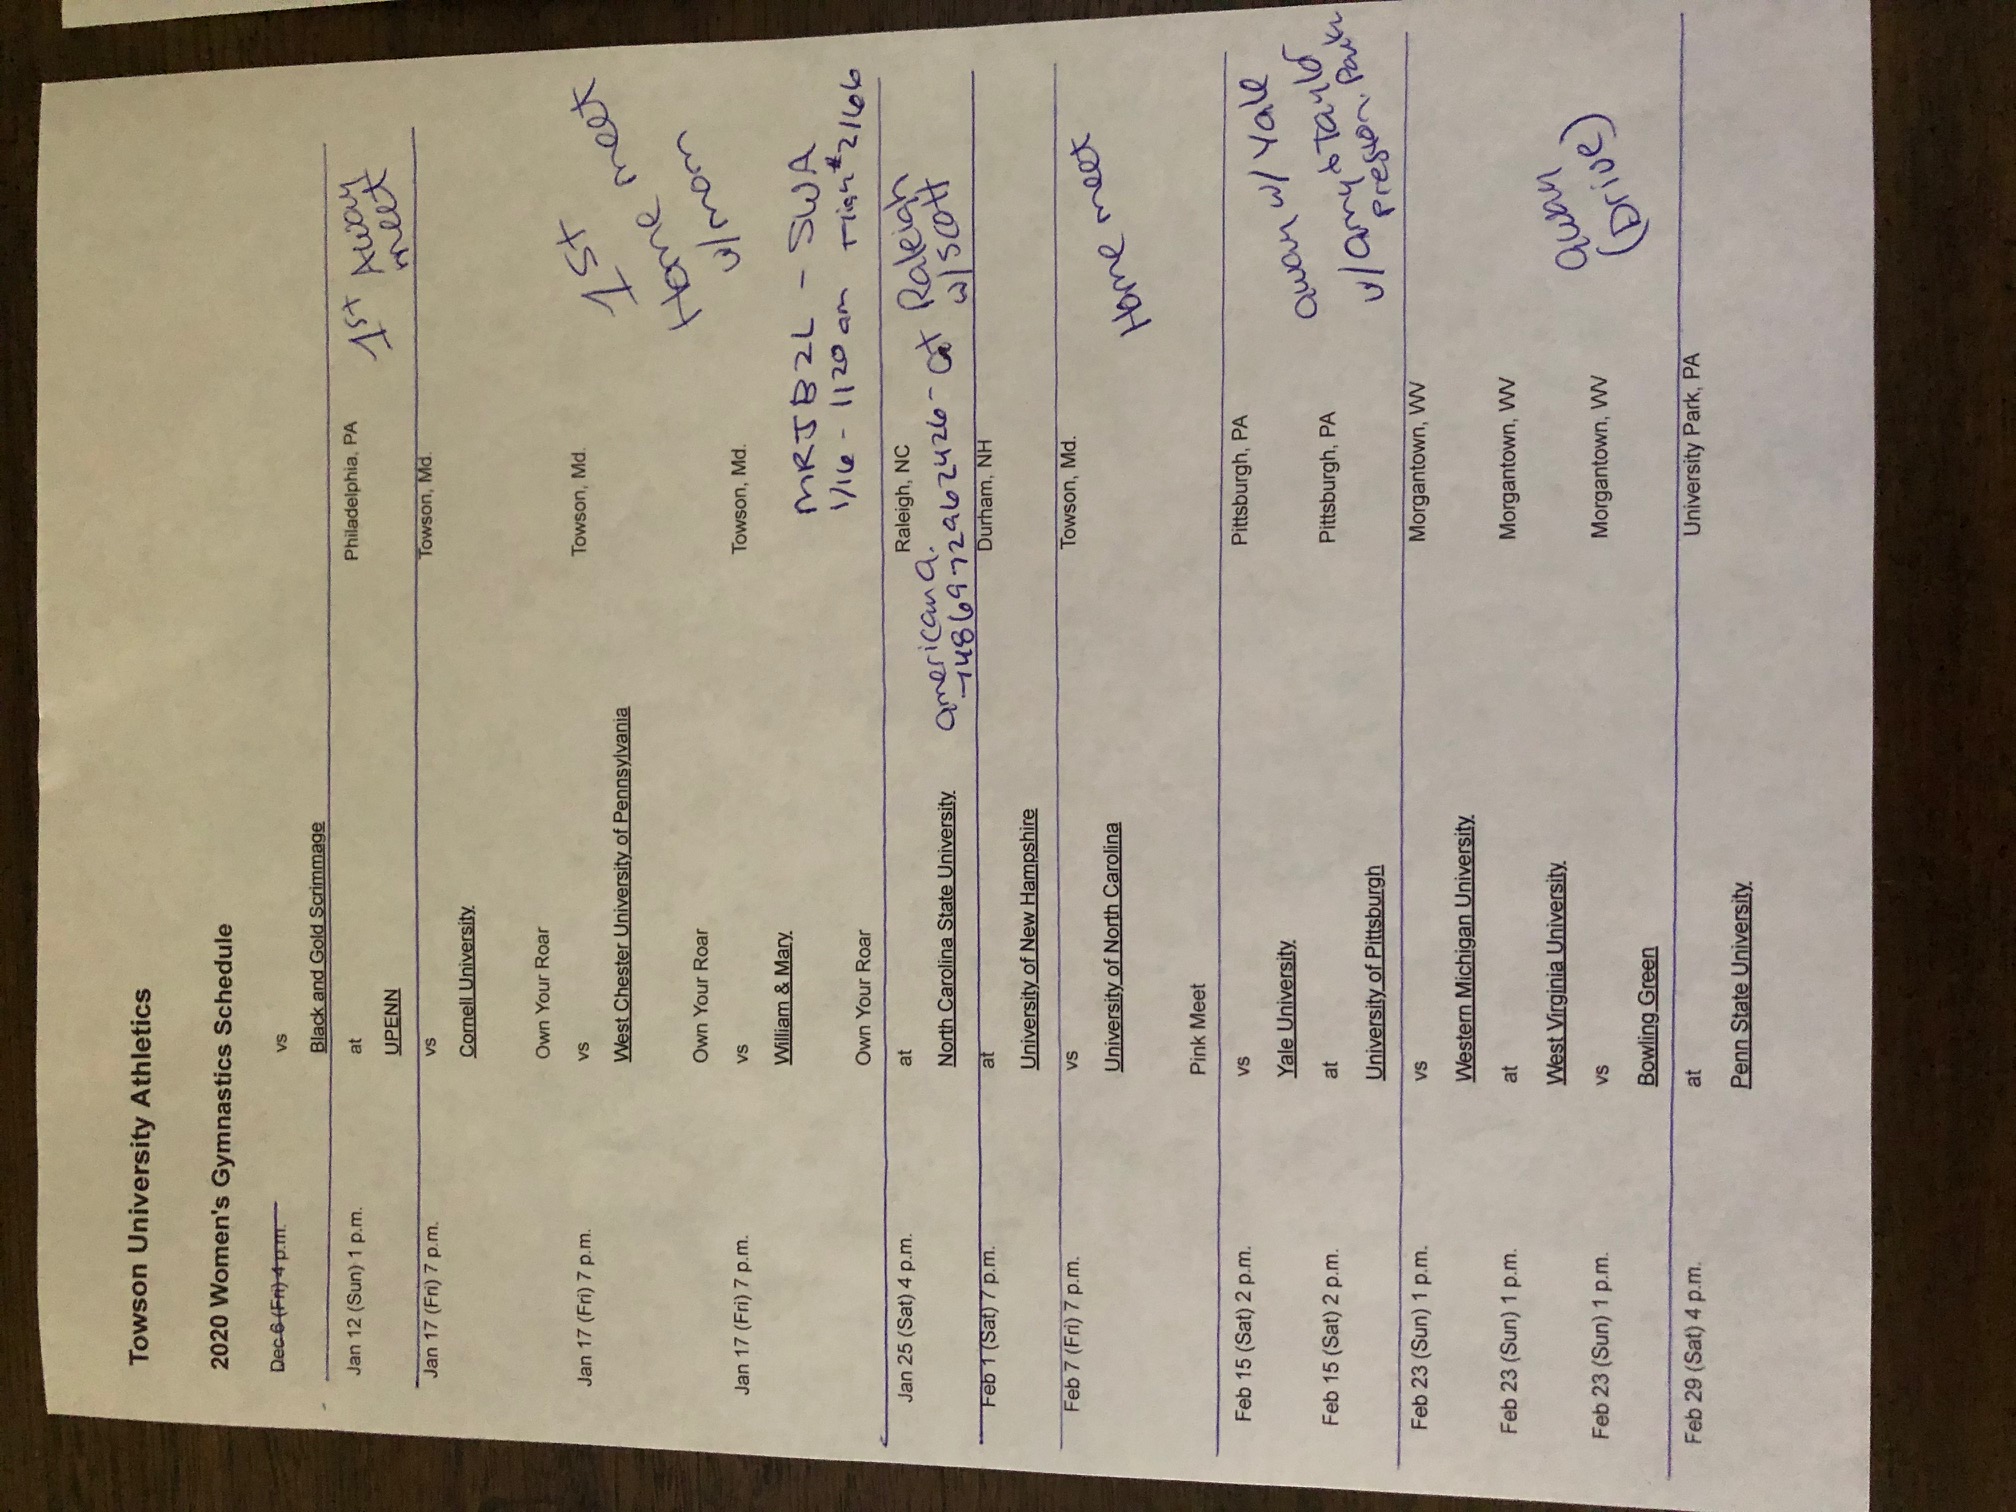 Towson University Athletics
2020 Women's Gymnastics Schedule
Dec 6 (Fri) 4 p.m. vs
Black and Gold Scrimmage
Jan 12 (Sun) 1 p.m. at Philadelphia, PA 1st Away
UPENN meet
Jan 17 (Fri) 7 p.m. vs Towson, Md.
Cornell University
Own Your Roar
Jan 17 (Fri) 7 p.m. vs Towson, Md. 1st
West Chester University of Pennsylvania meet
Home
Own Your Roar w/mom
Jan 17 (Fri) 7 p.m. vs Towson, Md.
William & Mary MRJB2L - SWA
1/16 - 1120 am #2166
Own Your Roar
Jan 25 (Sat) 4 p.m. at Raleigh, NC Raleigh
american a. w/Scott
North Carolina State University 7486972962426 - at
Feb 1 (Sat) 7 p.m. at Durham, NH
University of New Hampshire
Feb 7 (Fri) 7 p.m. vs Towson, Md.
University of North Carolina Home meet
Pink Meet
Feb 15 (Sat) 2 p.m. vs Pittsburgh, PA
Yale University Quan w/ Yale
Feb 15 (Sat) 2 p.m. at Pittsburgh, PA
University of Pittsburgh w/amy
Feb 23 (Sun) 1 p.m. vs Morgantown, WV
Western Michigan University
Feb 23 (Sun) 1 p.m. at Morgantown, WV
West Virginia University Quan
Feb 23 (Sun) 1 p.m. vs Morgantown, WV (Drive)
Bowling Green
Feb 29 (Sat) 4 p.m. at University Park, PA
Penn State University